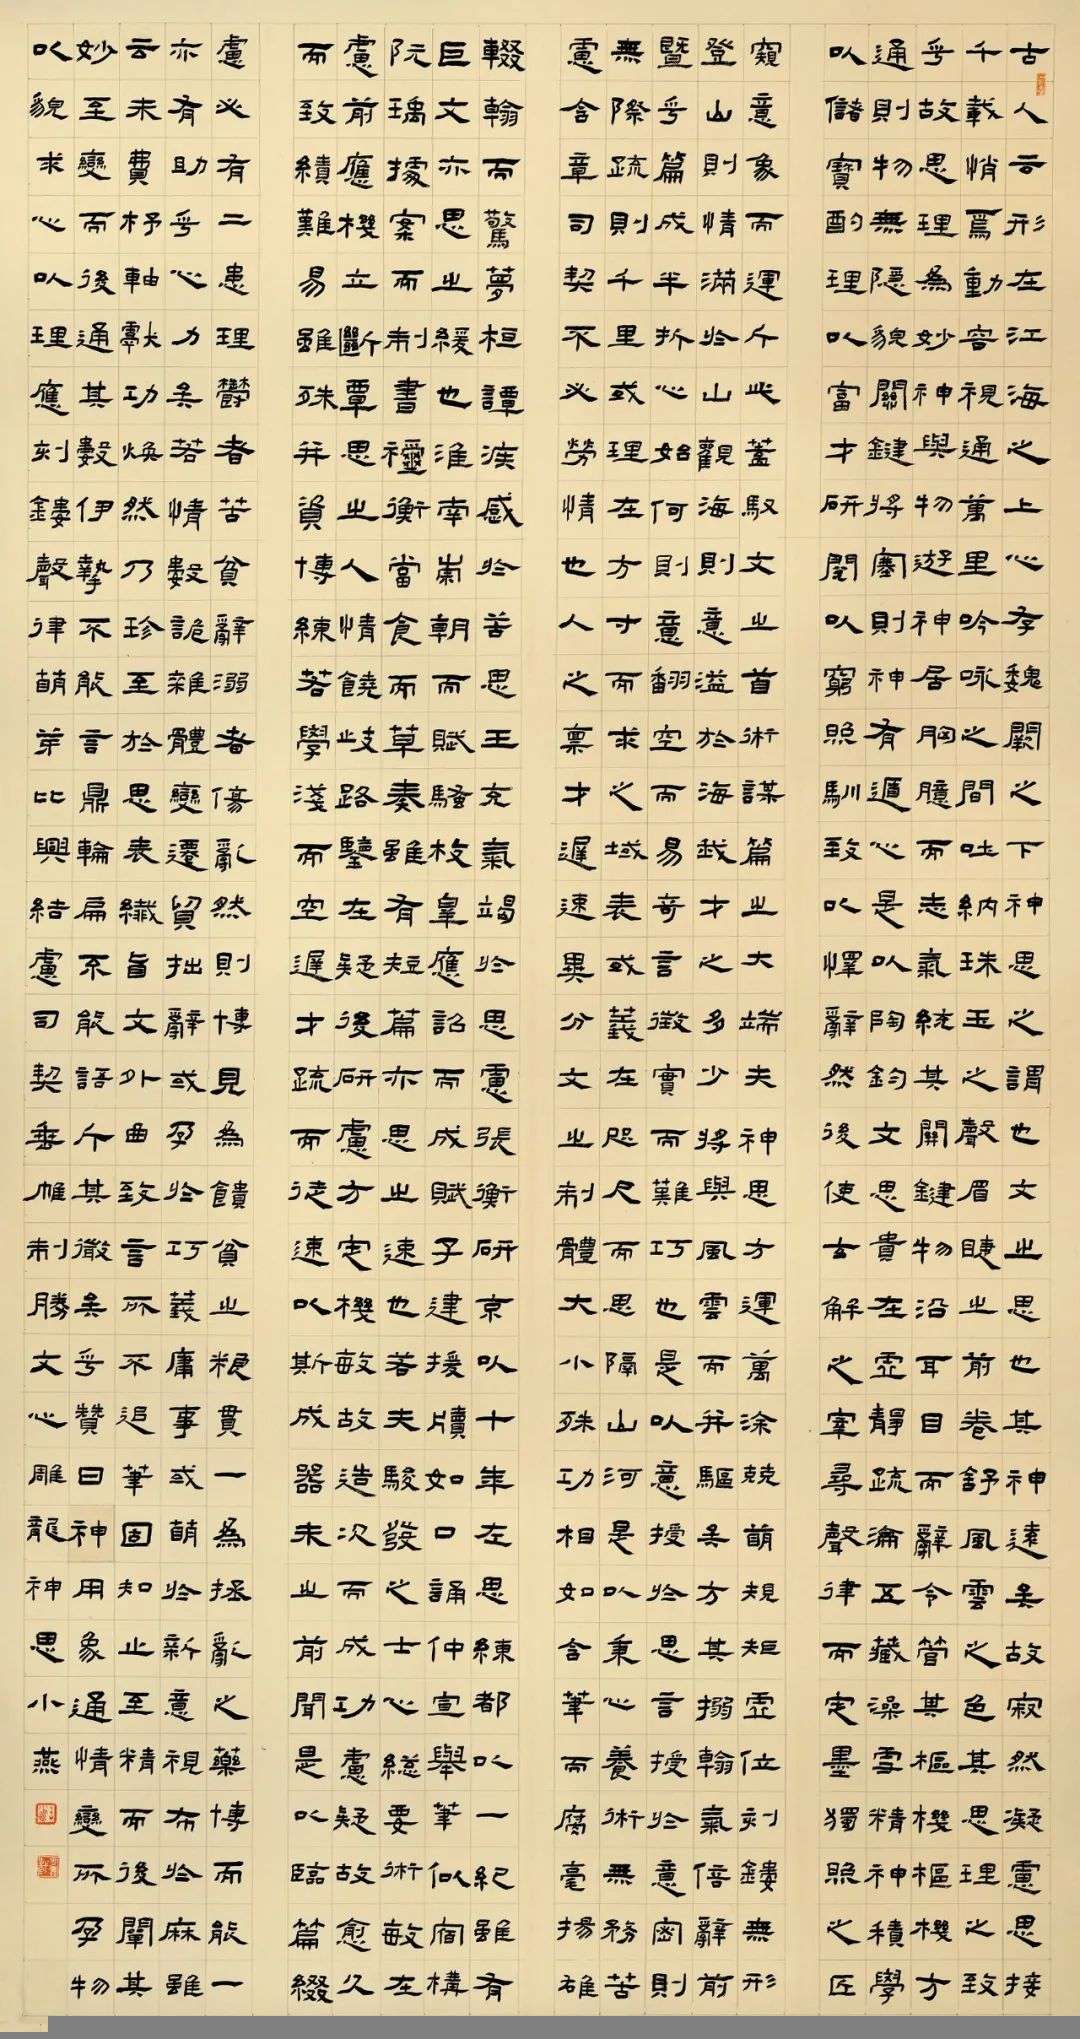 古人云形在江海之上心存魏闕之下神思之謂也文之思也其神遠矣故寂然凝慮思接
千載悄焉動容視通萬里吟咏之間吐納珠玉之聲眉睫之前卷舒風雲之色其思理之致
乎故思理為妙神與物遊神居胸臆而志氣統其關鍵物沿耳目而辭令管其樞機樞機方
通則物無隱貌關鍵將塞則神有遁心是以陶鈞文思貴在虛靜疏瀹五藏澡雪精神積學
以儲寶酌理以富才研閱以窮照馴致以懌辭然後使玄解之宰尋聲律而定墨獨照之匠
窺意象而運斤此蓋馭文之首術謀篇之大端夫神思方運萬涂競萌規矩虛位刻鏤無形
登山則情滿於山觀海則意溢於海我才之多少將與風雲而并驅矣方其搦翰氣倍辭前
暨乎篇成半折心始何則意翻空而易奇言徵實而難巧也是以意授於思言授於意密則
無際疏則千里或理在方寸而求之域表或義在咫尺而思隔山河是以秉心養術無務苦
慮含章司契不必勞情也人之稟才遲速異分文之制體大小殊功相如含筆而腐毫揚雄
輟翰而驚夢桓譚疾感於苦思王充氣竭於思慮張衡研京以十年左思練都以一紀雖有
巨文亦思之緩也淮南崇朝而賦騷枚皋應詔而成賦子建援牘如口誦仲宣舉筆似宿構
阮瑀據案而制書禰衡當食而草奏雖有短篇亦思之速也若夫駿發之士心總要術敏在
慮前應機立斷覃思之人情饒歧路鑒在疑後研慮方定機敏故造次而成功慮疑故愈久
而致績難易雖殊并資博練若學淺而空遲才疏而徒速以斯成器未之前聞是以臨篇綴
慮必有二患理鬱者苦貧辭溺者傷亂然則博見為饋貧之糧貫一為拯亂之藥博而能一
亦有助乎心力矣若情數詭雜體變遷貿拙辭或孕於巧義庸事或萌於新意視布於麻雖
云未費杼軸獻功煥然乃珍至於思表纖旨文外曲致言所不追筆固知止至精而後闡其
妙至變而後通其數伊摯不能言鼎輪扁不能語斤其微矣乎贊曰神用象通情變所孕物
以貌求心以理應刻鏤聲律萌芽比興結慮司契垂帷制勝文心雕龍神思小燕